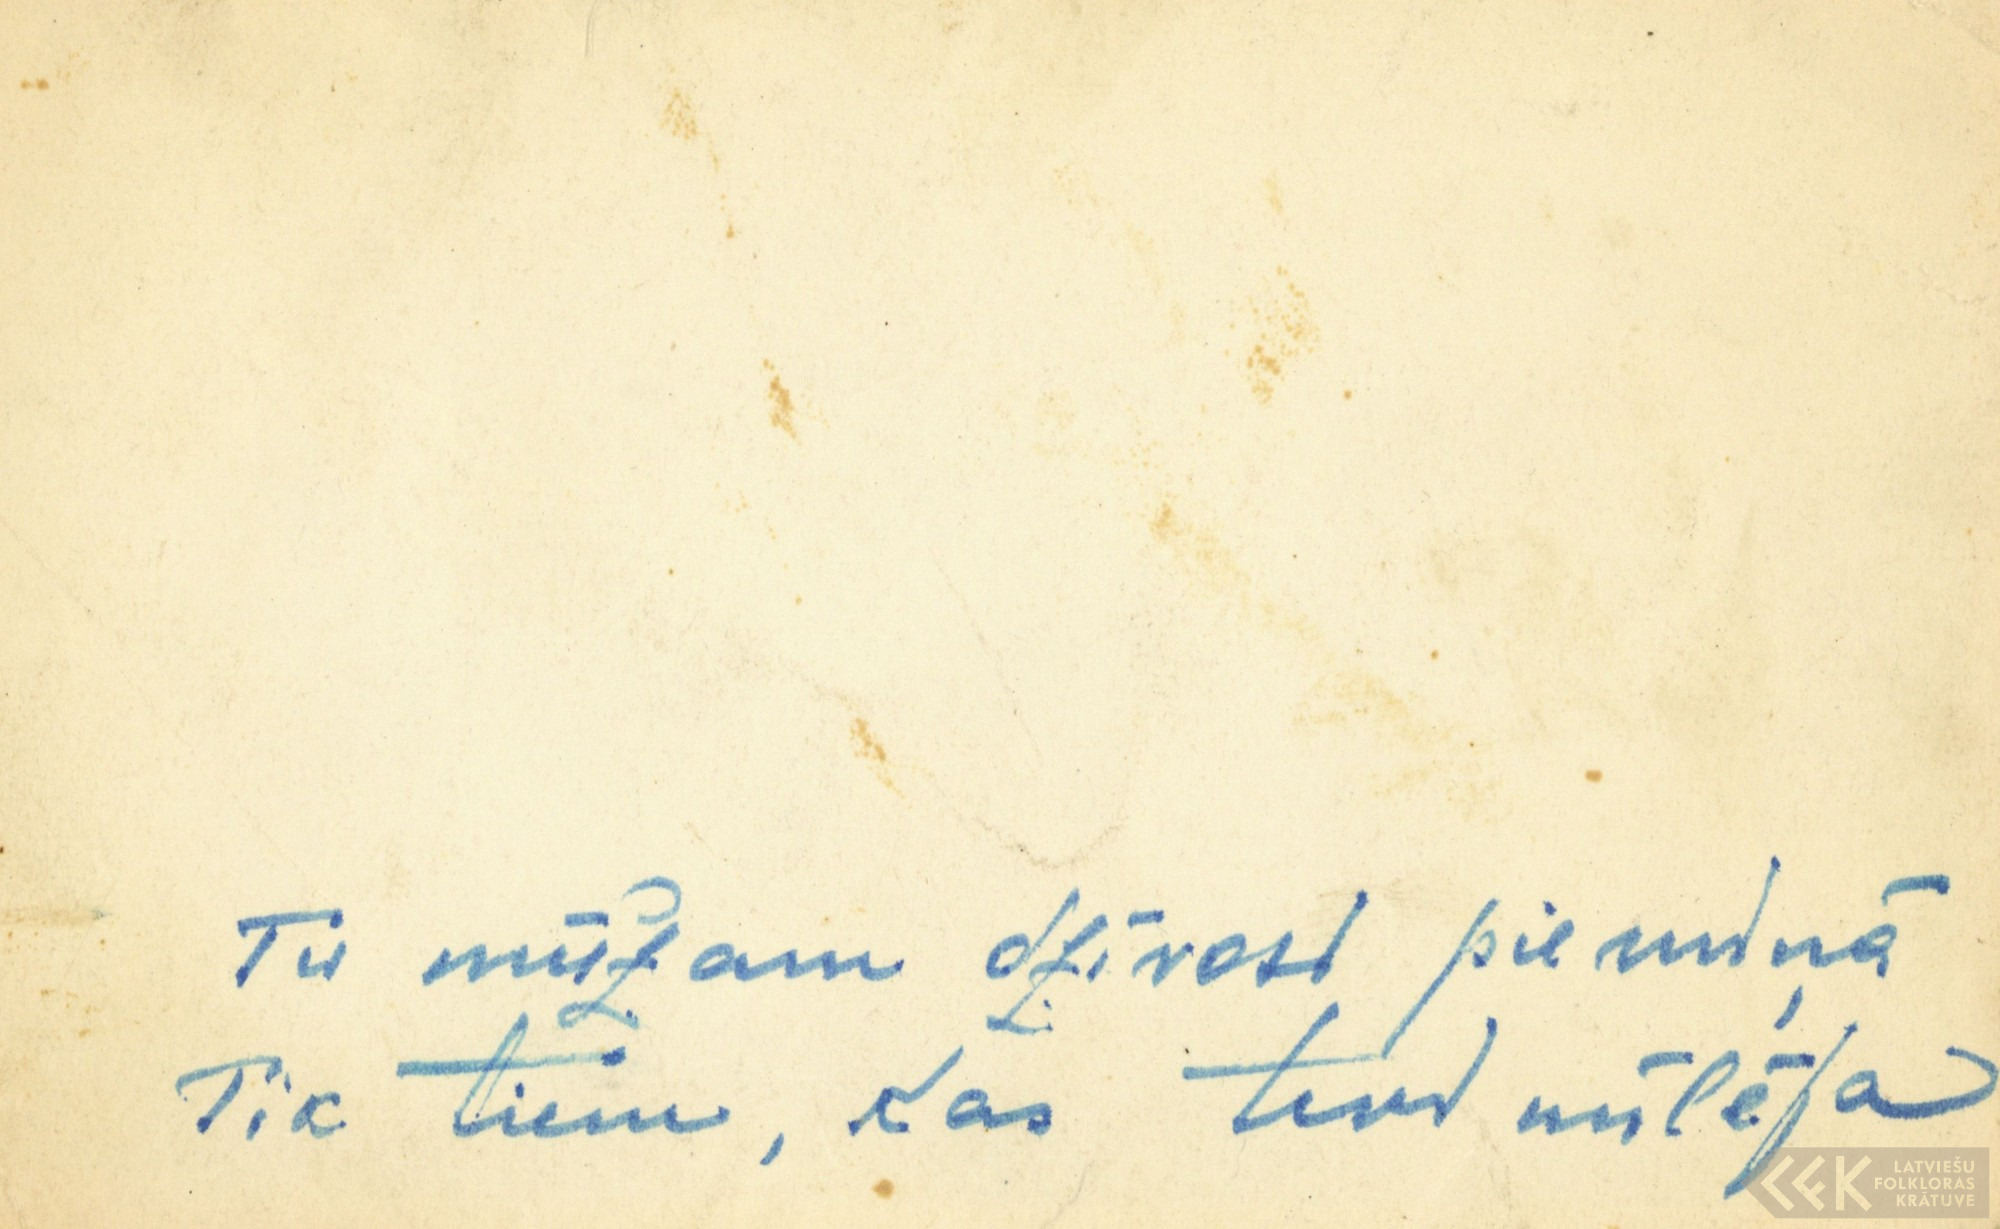 Tu mūžam dzīvosi piemiņā
Tik tiem, kas tevi mīlēja
LATVIEŠU
FOLKLORAS
KRĀTUVE